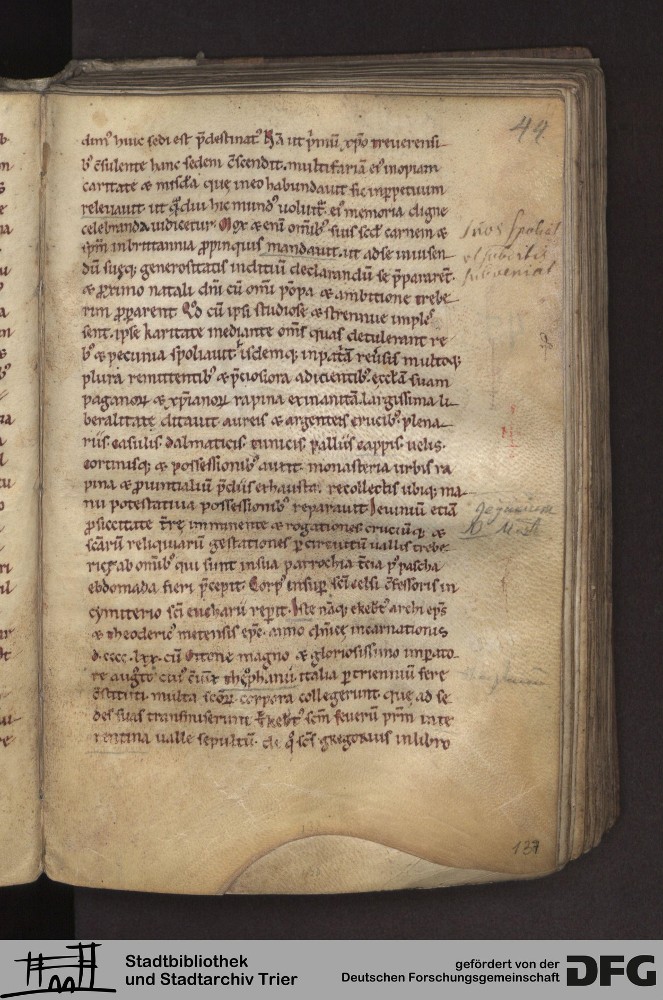 44
dim' huic sedi est p̄destinat' Nā ut p̓mū xp̄o treverensi
b' ɔ̄sulente hanc sedem ɔ̄scendit. multifariā ei' inopiam
caritate & mis̄cd̄a que in eo habundavit sic in ꝑpetuum
relevavit. ut q̄diu hic mund' volvit̄. ei' memoria digne
celebranda vidicetur. Mox & enī om̄ib' suis scd̄ carnem &
sp̄m in brittannia propinquis mandavit. ut ad se invisen
dū suęq; generositatis indiciū declarandū se p̄pararet.
& proximo natali dn̄i cū om̄i pōpa & ambitione treve
rim properarent Qd cū ipsi studiose & strennue imple
sent. ipse karitate mediante om̄s quas detulerant re
b' & pecunia spoliavit. isdemq; in pat̄ā rev̄sis multoq;
plura remittentib' & p̄ciosiora adicientib' ęcclā suam
paganoꝝ & xp̄ianoꝝ rapina exinanitā. largissima li
beralitate ditavit aureis & argenteis crucib' plena
riis. casulis. dalmaticis. tunicis. palliis cappis. velis.
cortinisq; & possessionib' auxit. monasteria urbis ra
pina & provintialiū p̄diis exhausta. recollectis ubiq; ma
nu potestativa possessionib' reparavit Ieiuniū etiā
p siccitate tr̄ę imminente & rogationes cruciūq; &
sc̄arū reliquiarū gestationes ꝑ circuitū vallis treve
ricę ab om̄ib' qui sunt in sua parrochia t̄cia p' pascha
ebdomada fieri p̄cepit. Corp' insup̄ sc̄i celsi ɔ̄fessoris in
cymiterio sc̄i eucharii repit. Iste nāq; ekeb̄t' archi ep̄s
& theoderic' metensis ep̄c. anno dn̄icę incarnationis
d.cccc.lxx. cū ottone magno & gloriosissimo imꝑato
re aug'to cui' ēiux theophanu italia ꝑ trienniū fere
ɔ̄stituti. multa sc̄oꝝ corpora collegerunt que ad se
des suas transmiserunt Ekeb̄t' scm̄ severū p̄rm̄ in te
rentina valle sepultū. de q̊ sc̄s gregorius in libro
137
Stadtbibliothek
und Stadtarchiv Trier
gefördert von der
Deutschen Forschungsgemeinschaft
DFG